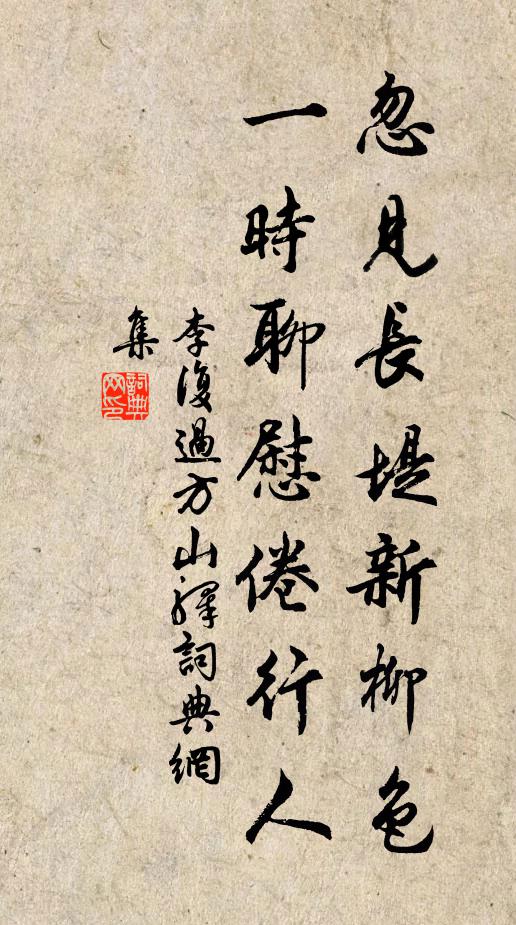 忽見長堤新柳色
一時聊慰倦行人
李復過方山驛詞典網
集
詞典
网印